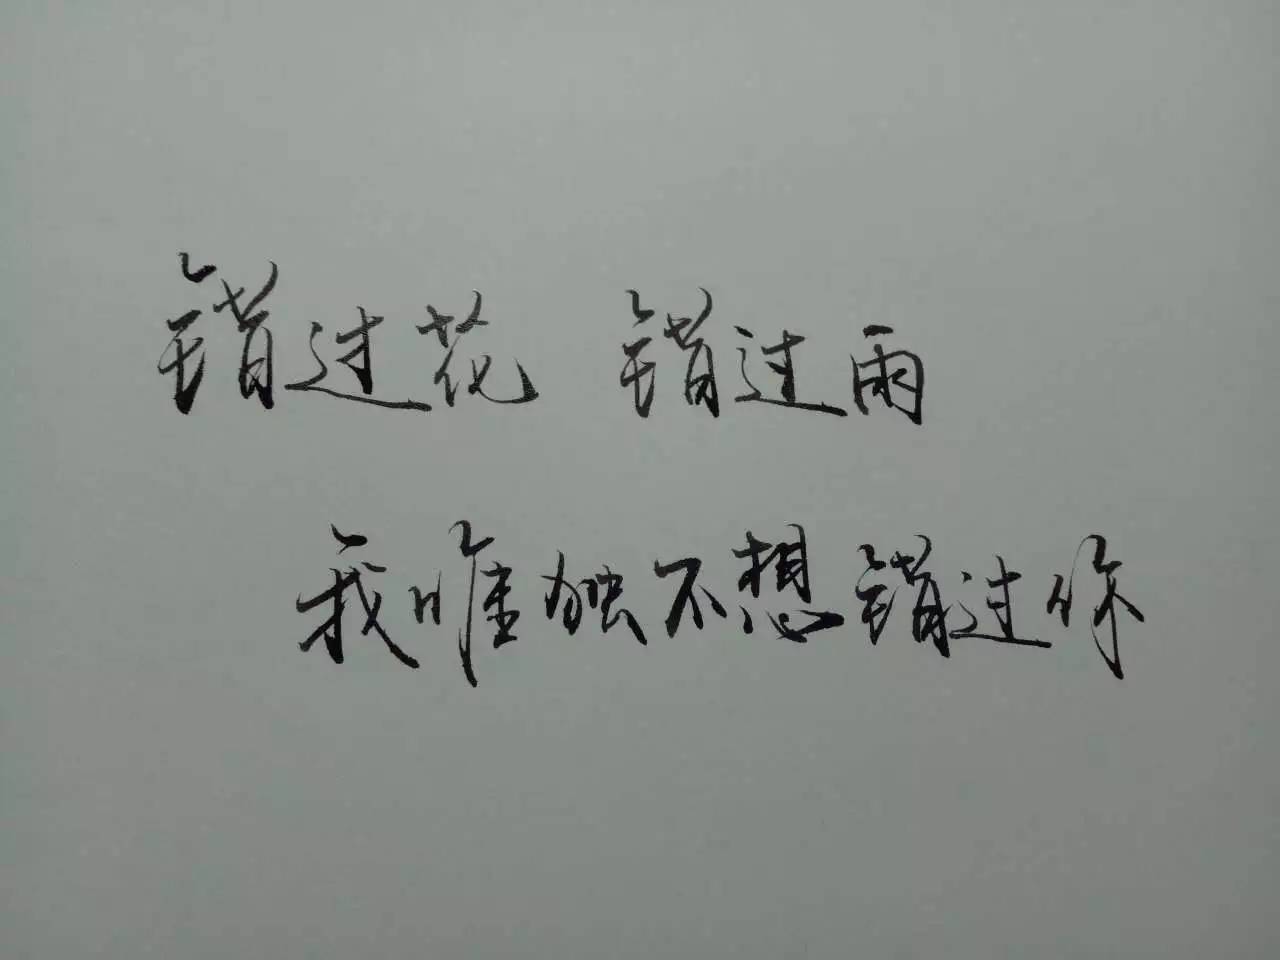 错过花 错过雨
我唯独不想错过你